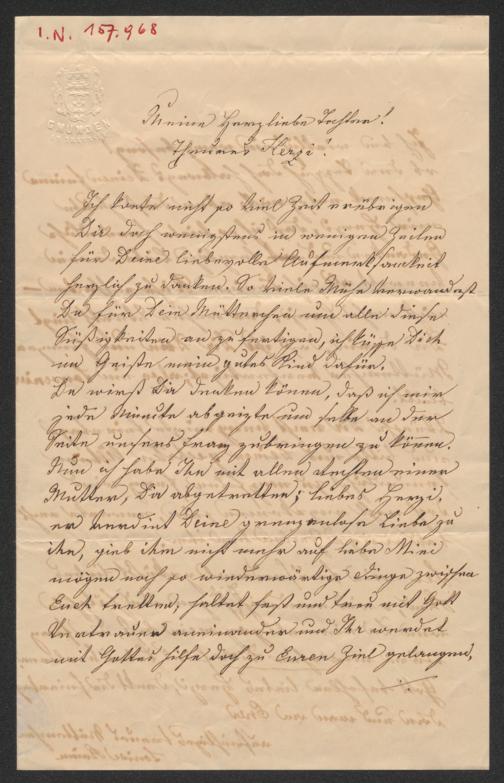 I.N. 157.968
GMUNDEN
Meine Herzliebe Tochter!
Theures Herzi!
Ich konte nicht so viel Zeit erübrigen
Dir doch wenigstens in wenigen Zeilen
für Deine liebevolle Aufmerksamkeit
herzlich zu danken. So viele Mühe verwendest
Du für Dein Mütterchen um alle diese
Süßigkeiten an zu fertigen, ich küße Dich
im Geiste mein gutes Kind dafür.
Du wirst Dir denken können, daß ich mir
jede Minute abgeizte um selbe an der
Seite unsers Franz zubringen zu können.
Nun ich habe Ihn mit allen Rechten einer
Mutter, Dir abgetretten; liebes Herzi,
er verdint Deine grenzenlose Liebe zu
ihn, gieb ihn nicht mehr auf liebe Mizi
mögen noch so wiederwärtige Dinge zwischen
Euch tretten, haltet fest und treu mit Gott
Vertrauen aneinander und Ihr werdet
mit Gottes hilfe doch zu Euren Ziel gelangen,